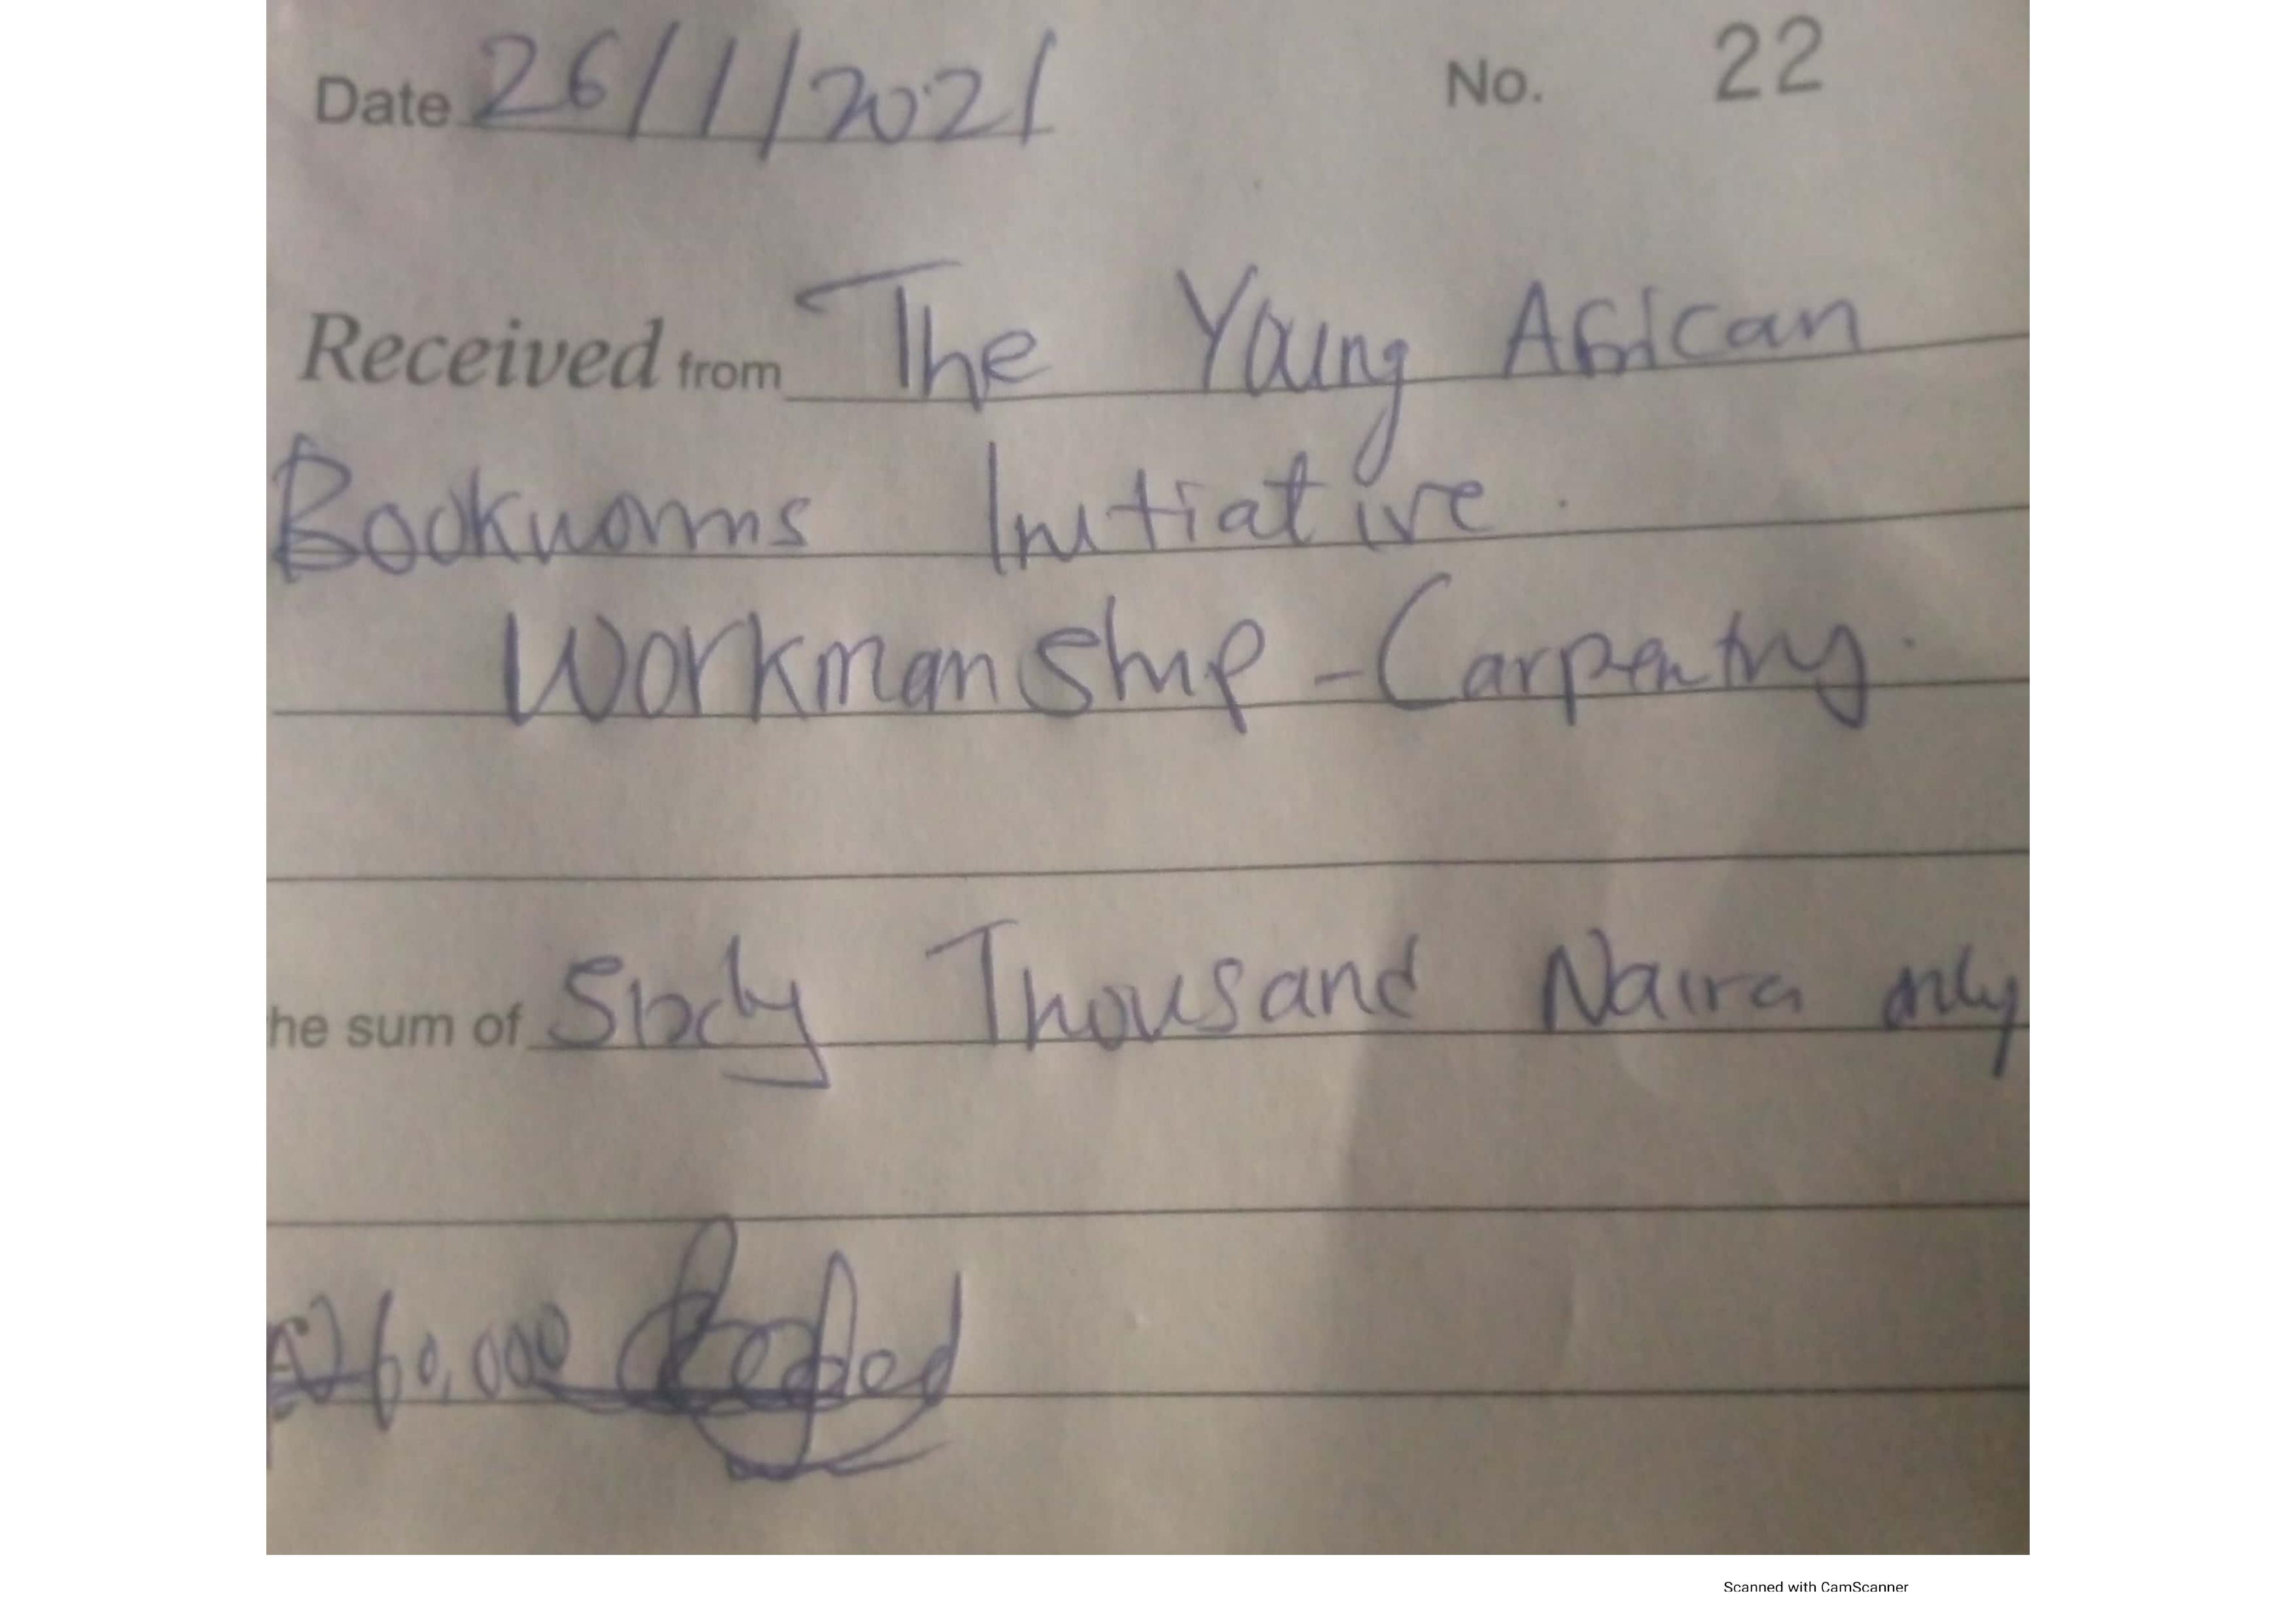 Date 26/1/2021 No. 22
Received from The Young African
Bookworms Initiative.
Workmanship - Carpentry.
he sum of Sixty Thousand Naira only
₦60,000
Scanned with CamScanner